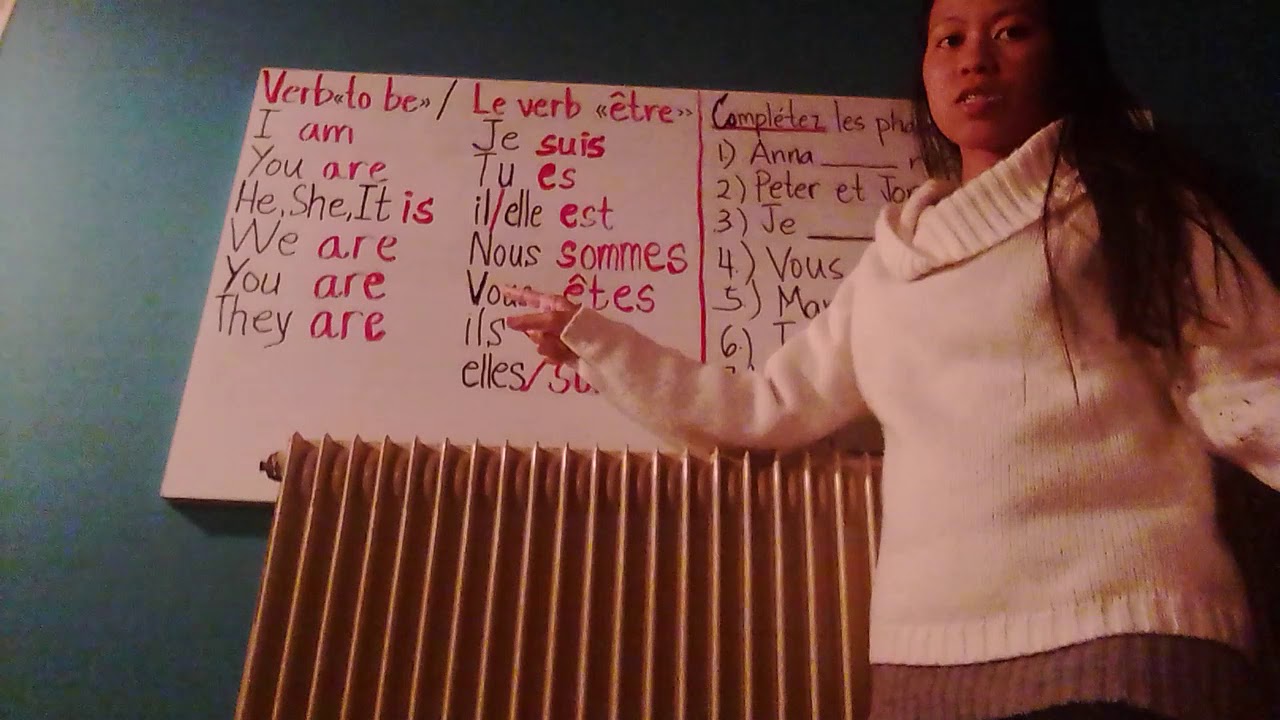 Verb «to be» / Le verb «être»
I am
You are
He, She, It is
We are
You are
They are
Je suis
Tu es
il/elle est
Nous sommes
Vous êtes
ils
elles/
Complétez les
1) Anna ____
2) Peter et
3) Je ____
4.) Vous
5.)
6.)